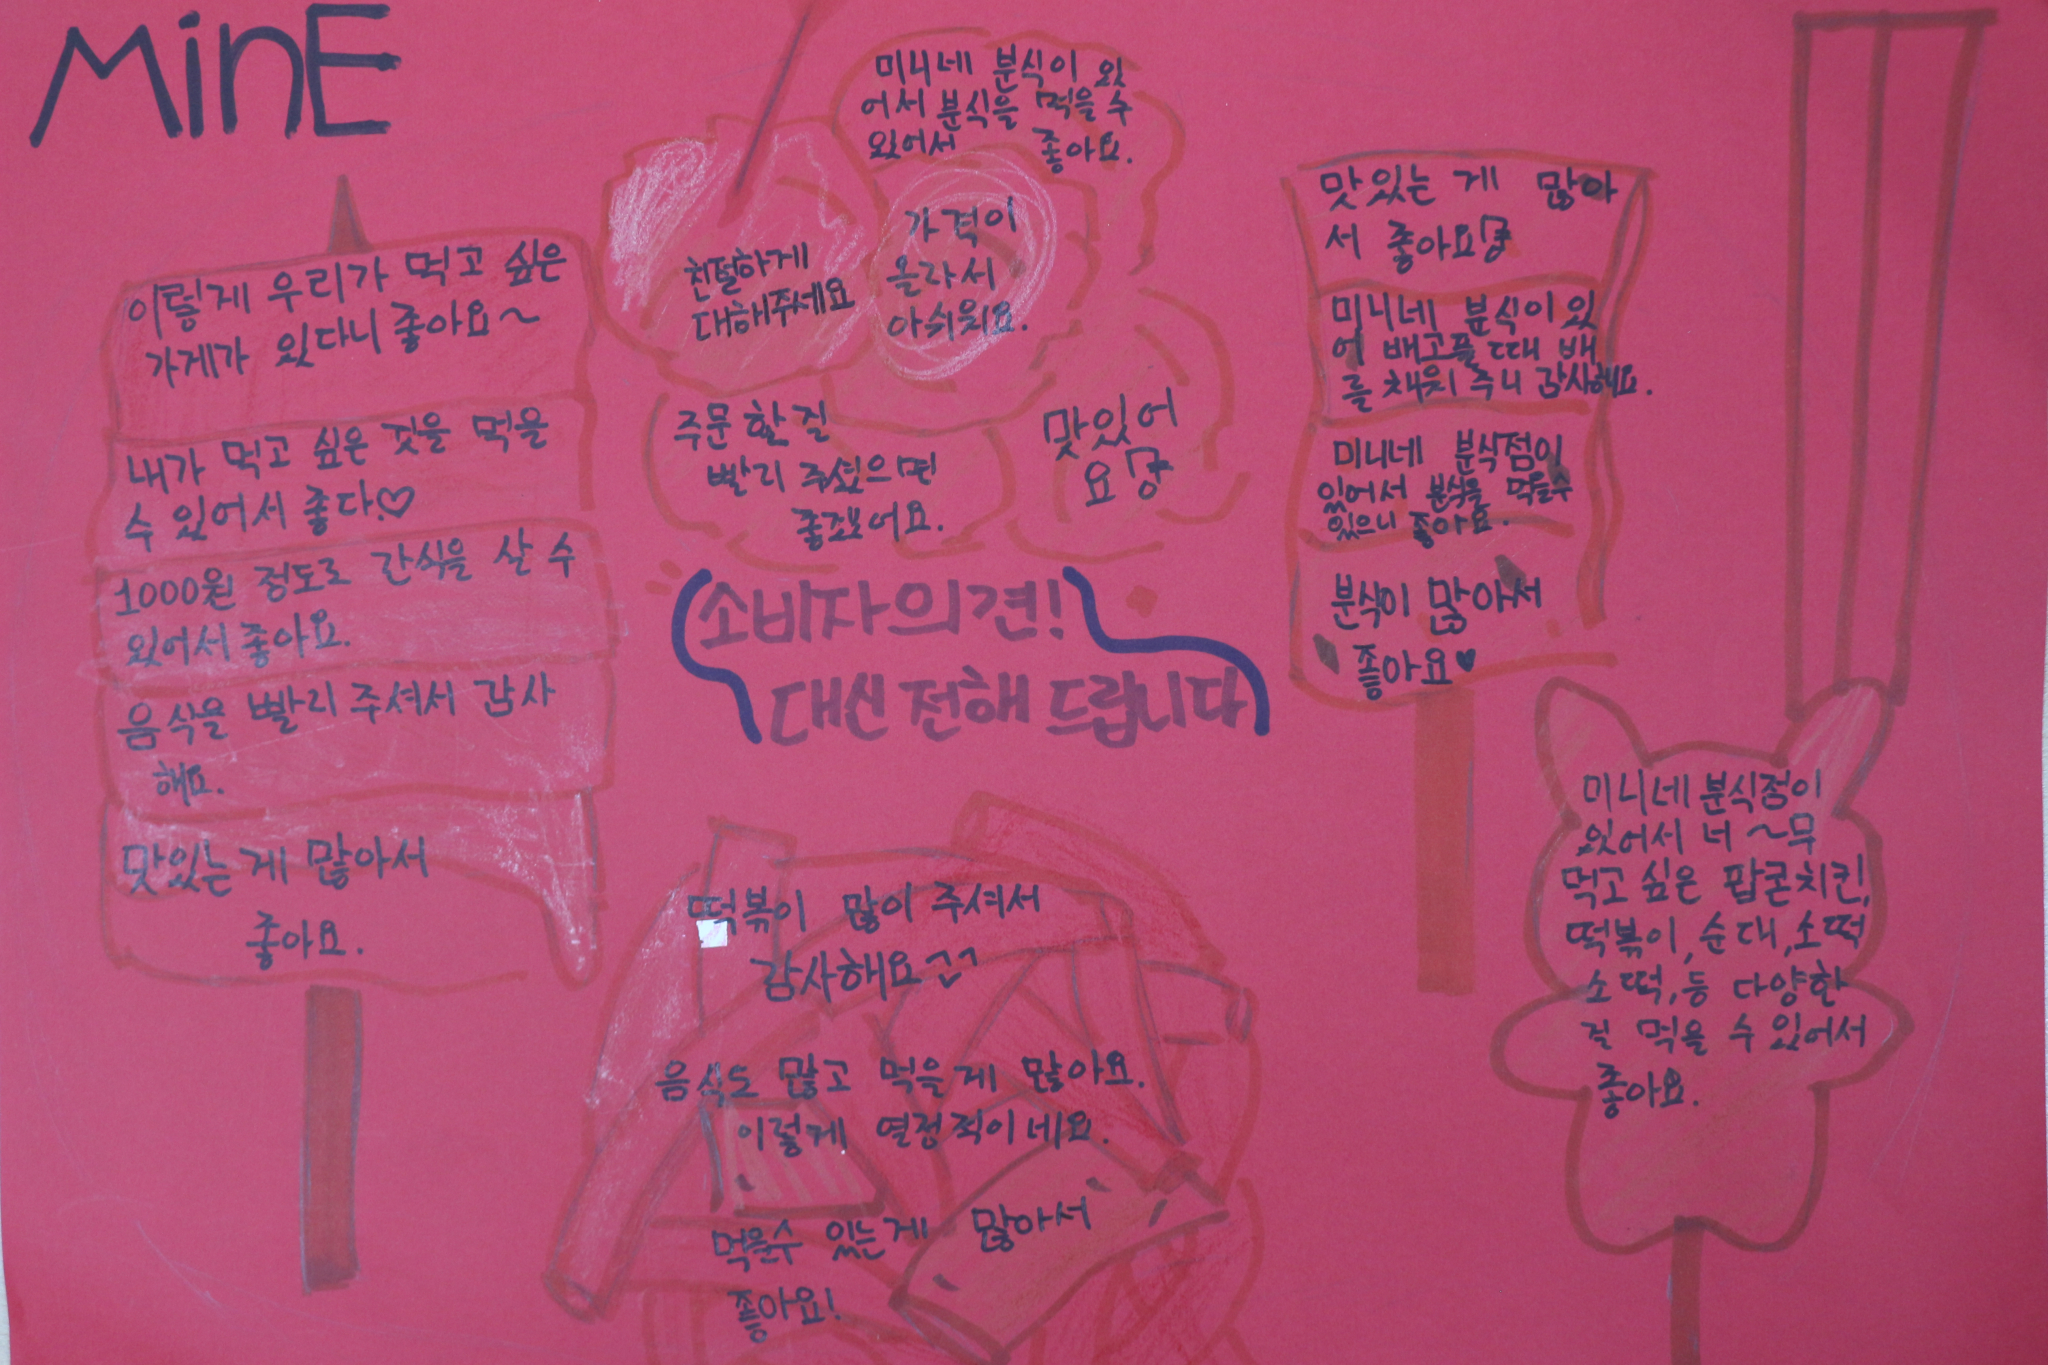 MinE
이렇게 우리가 먹고 싶은
가게가 있다니 좋아요~
내가 먹고 싶은 것을 먹을
수 있어서 좋다.♡
1000원 정도로 간식을 살 수
있어서 좋아요.
음식을 빨리 주셔서 감사
해요.
맛있는 게 많아서
좋아요.
미니네 분식이 있
어서 분식을 먹을 수
있어서 좋아요.
친절하게
대해주세요
가격이
올라서
아쉬워요.
주문할 걸
빨리 주셨으면
좋겠어요.
맛있어
요
소비자의견!
대신 전해 드립니다
맛있는 게 많아
서 좋아요
미니네 분식이 있
어 배고플 때 배
를 채워 주니 감사해요.
미니네 분식점이
있어서 분식을 먹을수
있으니 좋아요.
분식이 많아서
좋아요♥
떡볶이 많이 주셔서
감사해요
음식도 많고 먹을 게 많아요.
이렇게 열정적이네요.
먹을수 있는게 많아서
좋아요!
미니네 분식점이
있어서 너~무
먹고 싶은 팝콘치킨,
떡볶이,순대,소떡
소떡,등 다양한
걸 먹을 수 있어서
좋아요.